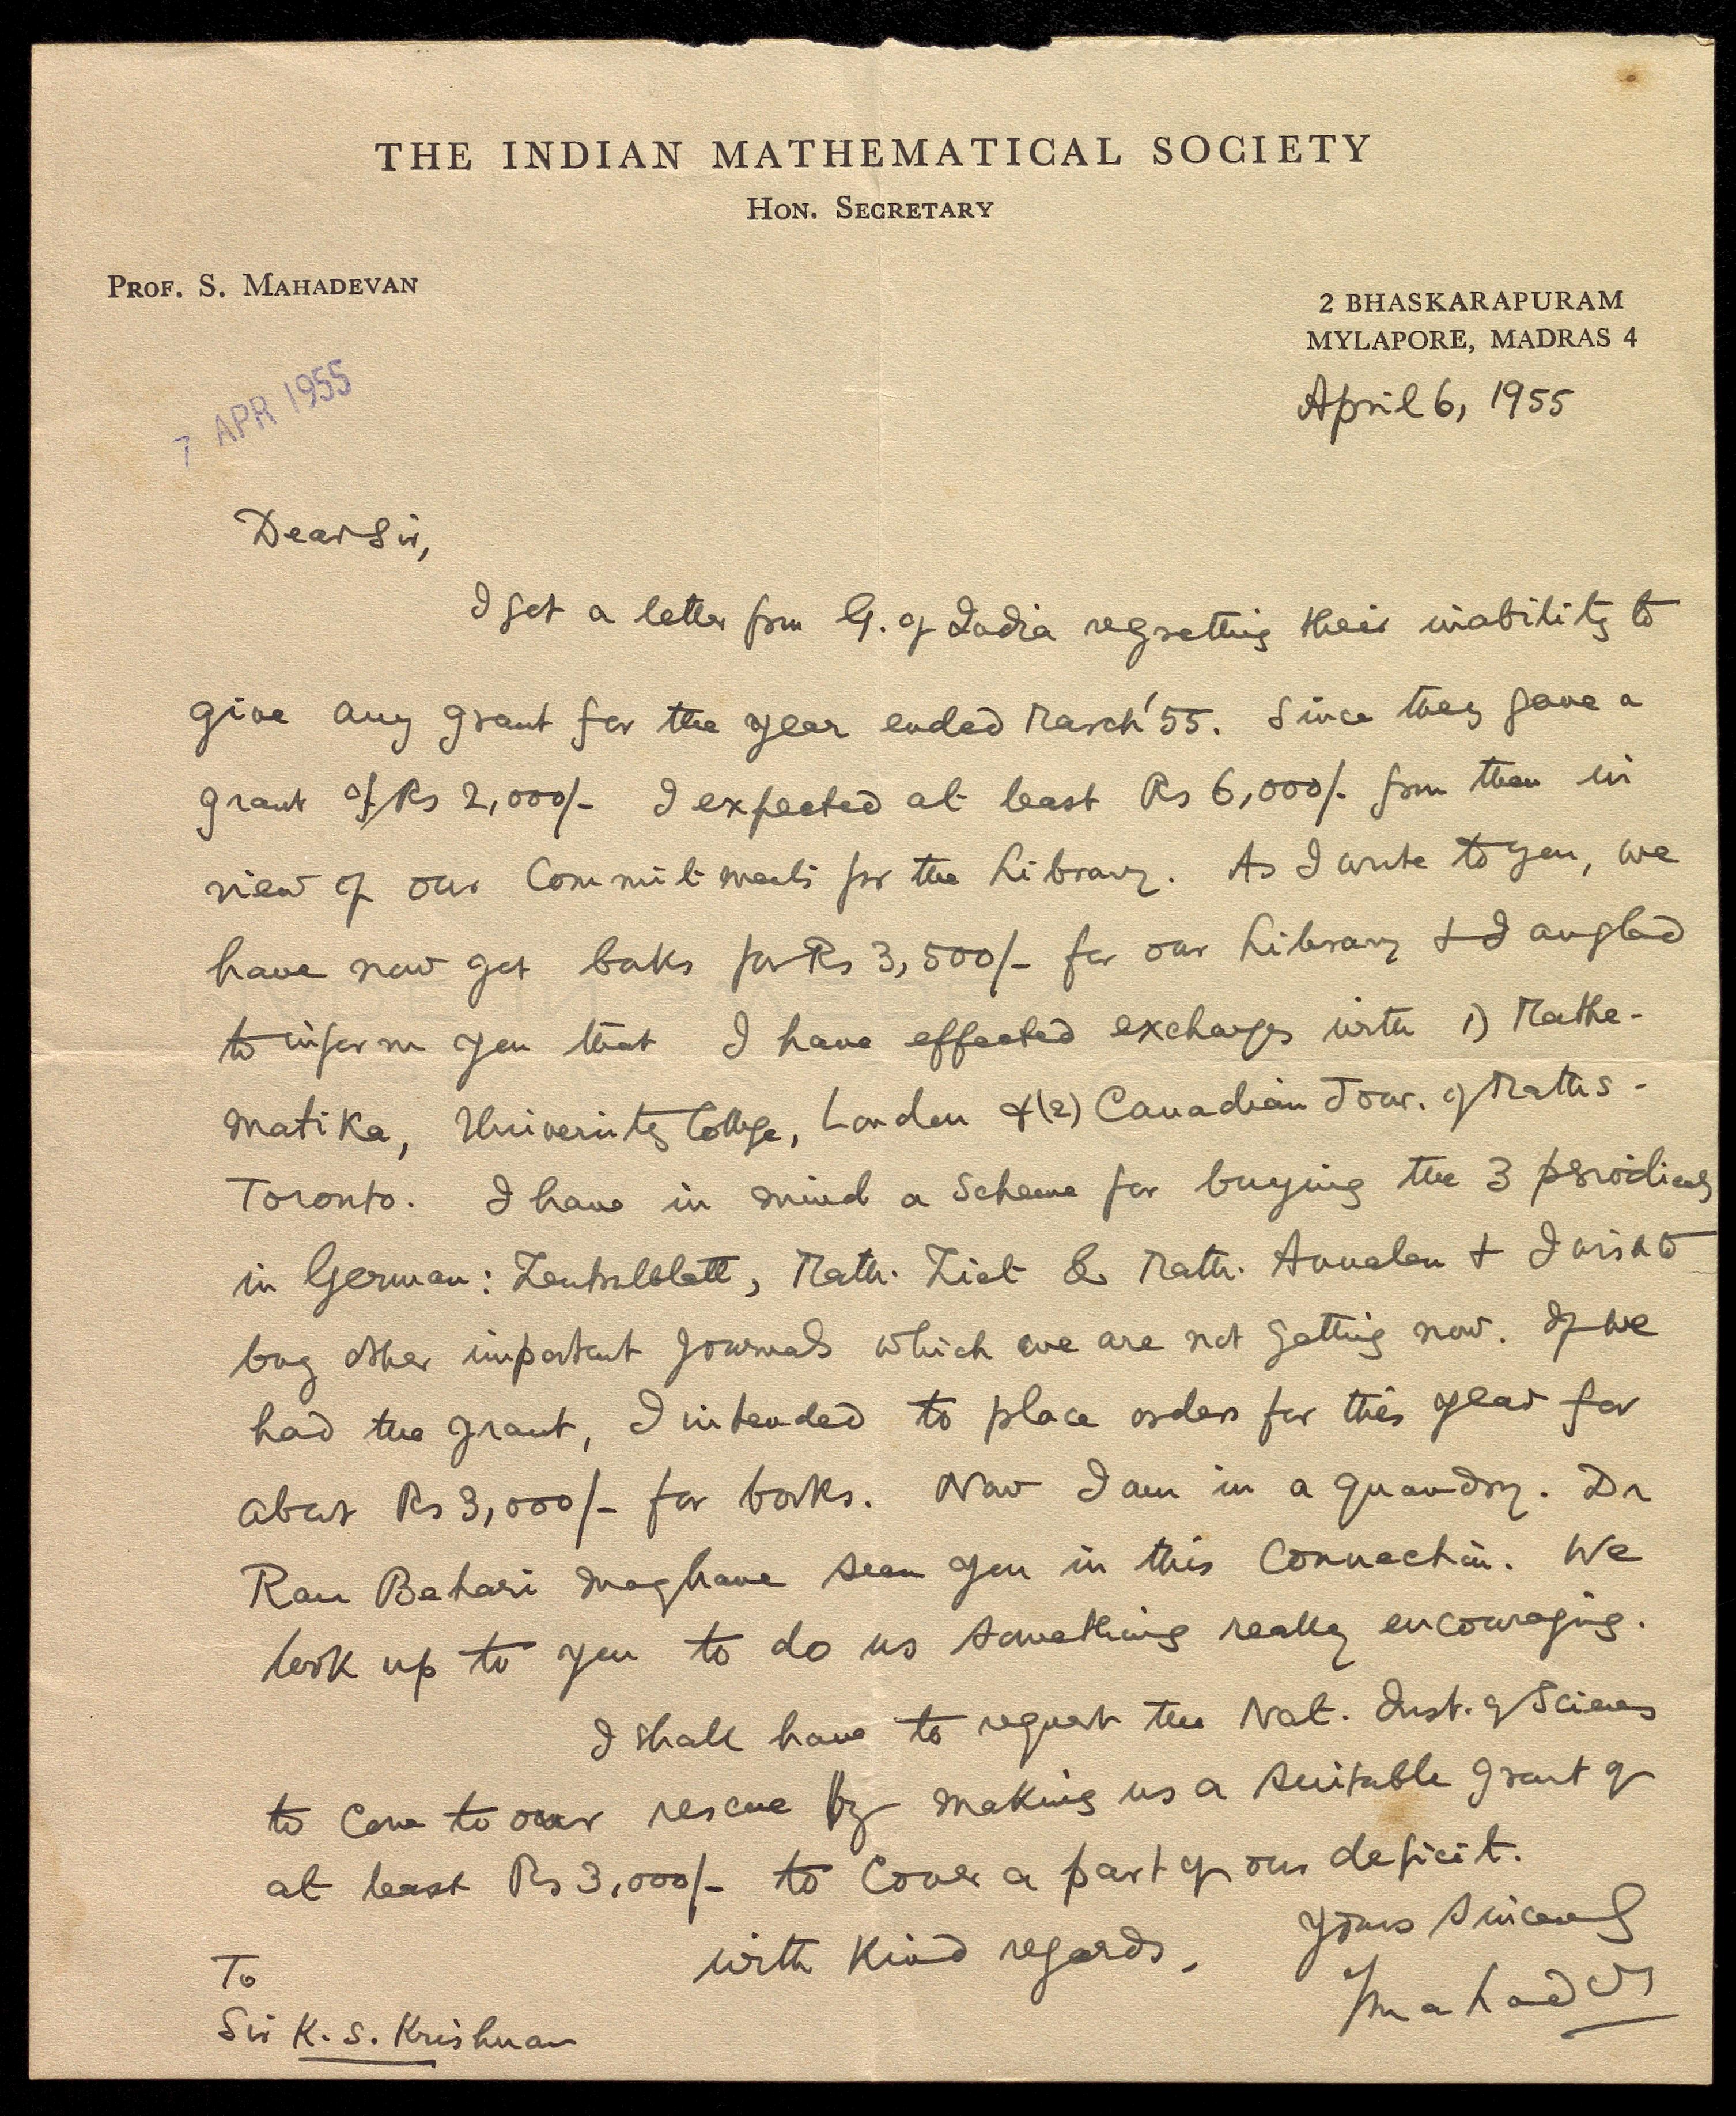 THE INDIAN MATHEMATICAL SOCIETY
HON. SECRETARY
PROF. S. MAHADEVAN
2 BHASKARAPURAM
MYLAPORE, MADRAS 4
7 APR 1955
April 6, 1955
Dear Sir,
I got a letter from G. of India regretting their inability to
give any grant for the year ended March '55. Since they gave a
grant of Rs 2,000/- I expected at least Rs 6,000/- from them in
view of our commitments for the Library. As I write to you, we
have now got books for Rs 3,500/- for our Library & I am glad
to inform you that I have effected exchanges with 1) Mathe-
matika, University College, London & (2) Canadian Jour. of Maths -
Toronto. I have in mind a scheme for buying the 3 periodicals
in German: Zentralblatt, Math. Zeit & Math. Annalen & I wish to
buy other important journals which we are not getting now. If we
had the grant, I intended to place orders for this year for
about Rs 3,000/- for books. Now I am in a quandry. Dr
Ram Behari may have seen you in this connection. We
look up to you to do us something really encouraging.
I shall have to request the Nat. Inst. of Sciences
to come to our rescue by making us a suitable grant of
at least Rs 3,000/- to cover a part of our deficit.
with kind regards,
Yours sincerely
Mahadevan
To
Sir K. S. Krishnan